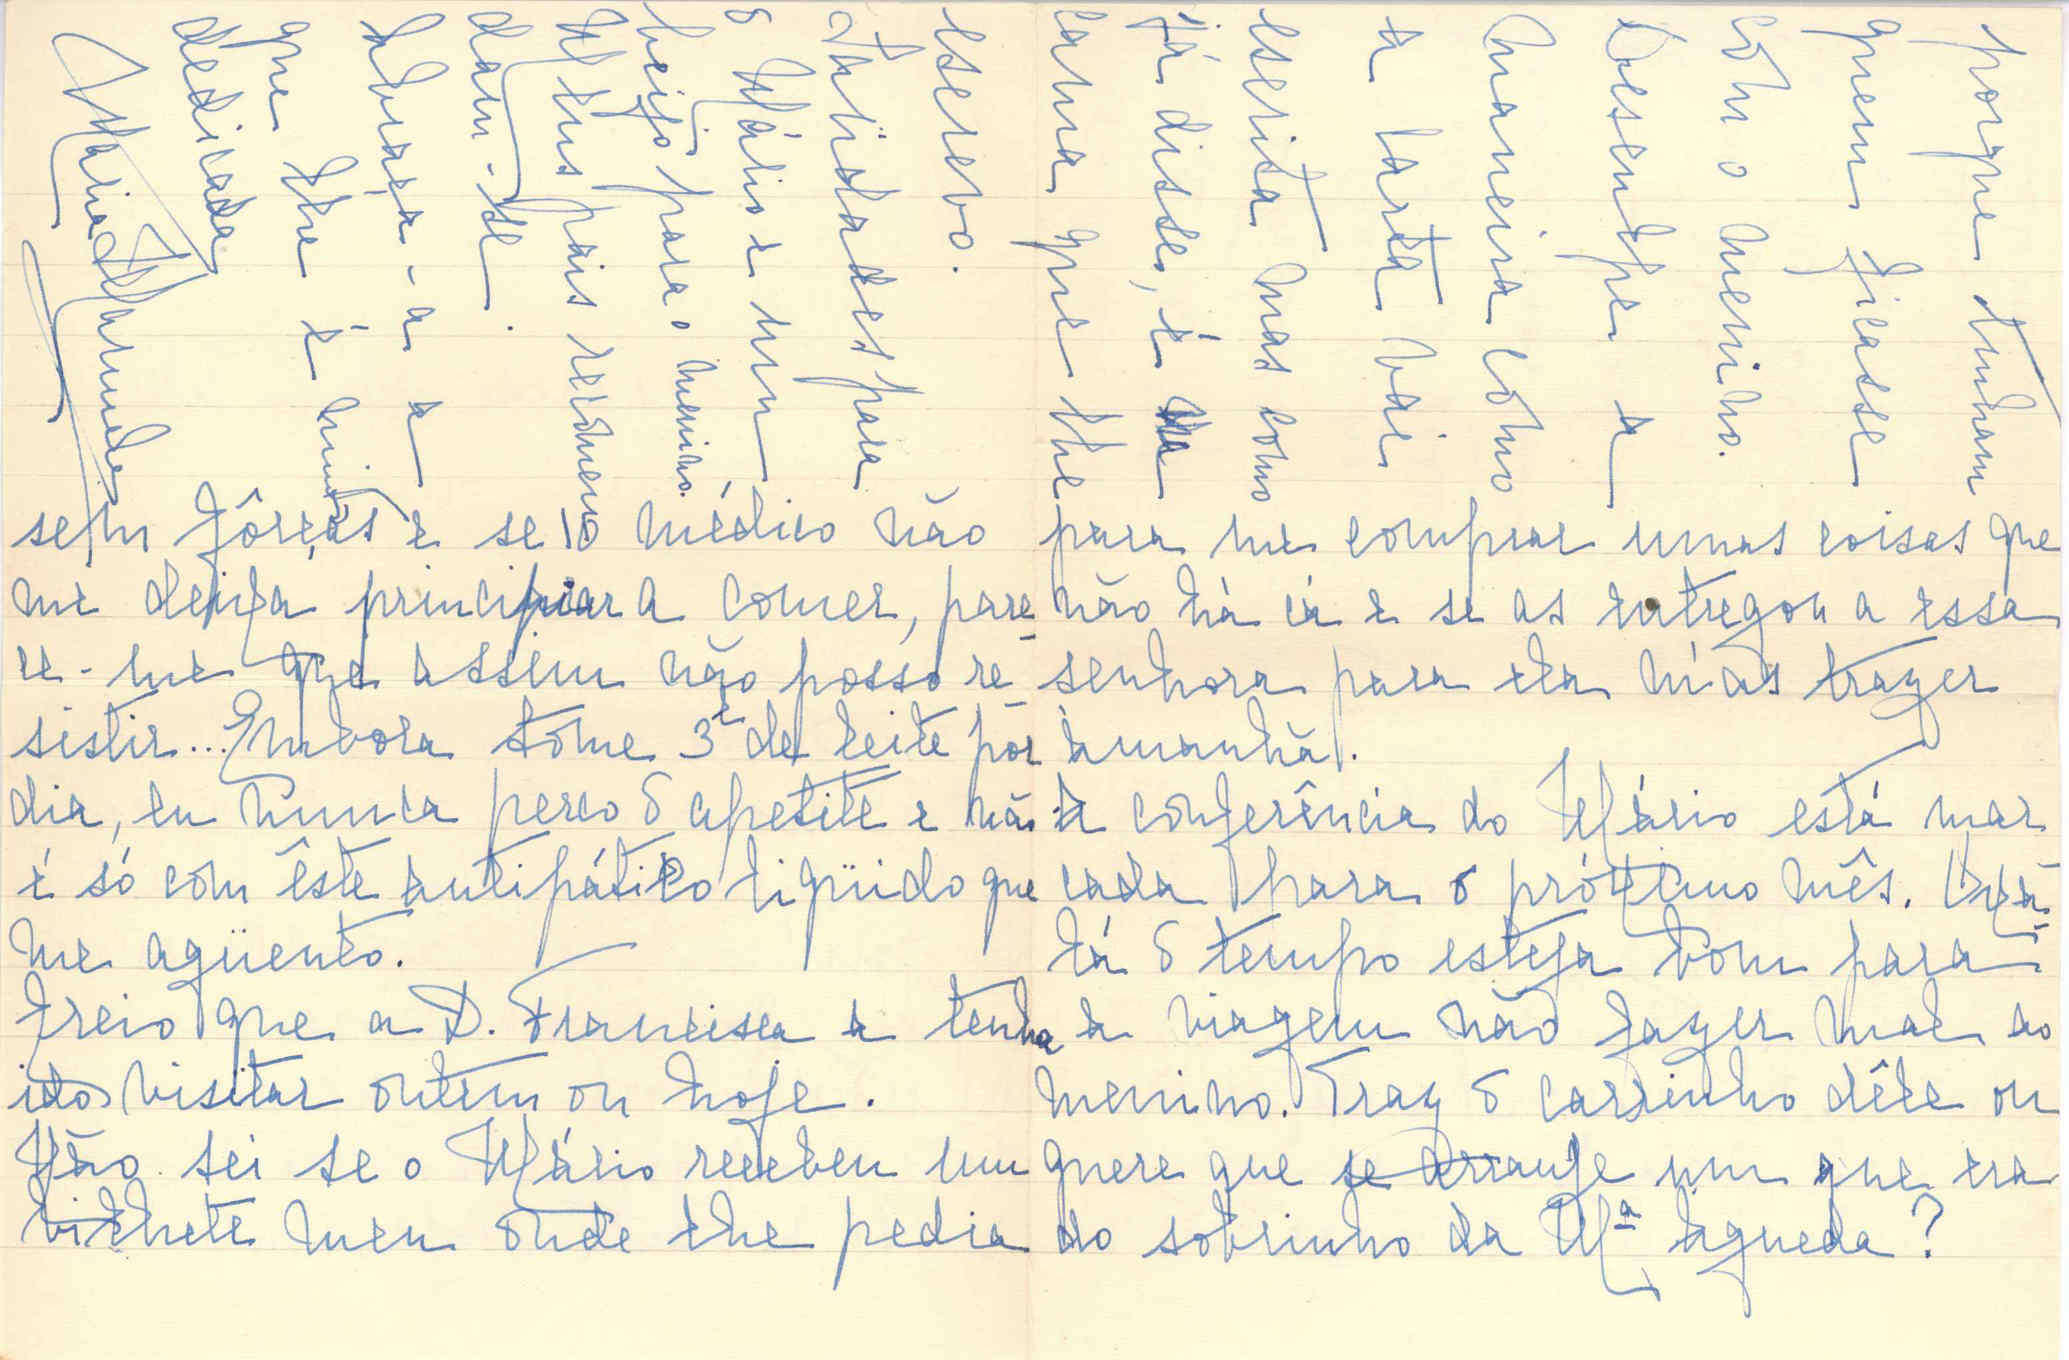 sem fôrças e se o médico não
me deixa principiar a comer, pare-
ce-me que assim não posso re-
sistir... Embora tome 3 de leite por
dia, eu nunca perco o apetite e não
é só com êste antipático ligüido que
me agüento.
Creio que a D. Francisca a tenha
ido visitar ontem ou hoje.
Não sei se o Mário recebeu um
bilhete meu onde lhe pedia
para me comprar umas coisas que
não há cá e se as entregou a essa
senhora para ela m'as trazer
àmanhã.
A conferência do Mário está mar-
cada para o próximo mês. Oxalá
lá o tempo esteja bom para
a viagem não fazer mal ao
menino. Traz o carrinho dêle ou
quere que se arranje um que era
do sobrinho da Mª Águeda?
porque tinham
quem ficasse
com o menino.
Desculpe a
maneira como
a carta vai
escrita mas como
já disse, é na
cama que lhe
escrevo.
Saüdades para
o Mário e um
beijo para o menino.
Meus pais recomen-
dam-se.
Abraça-a a
que lhe é muito
dedicada
Maria